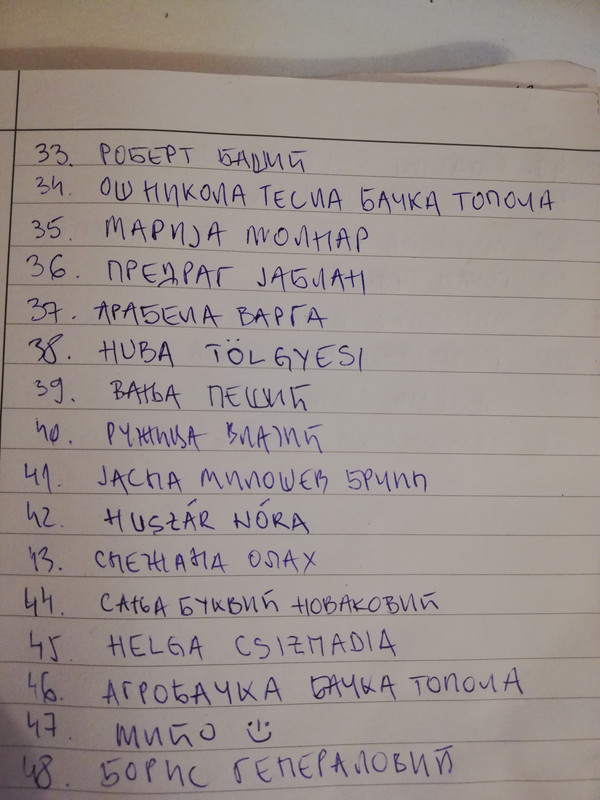 33. РОБЕРТ БАШИЋ
34. ОШ НИКОЛА ТЕСЛА БАЧКА ТОПОЛА
35. МАРИЈА МОЛНАР
36. ПРЕДРАГ ЈАБЛАН
37. АРАБЕЛА ВАРГА
38. HUBA TÖLGYESI
39. ВАЊА ПЕШИЋ
40. РУЖИЦА
41. ЈАСНА МИЛОШЕВ
42. HUSZÁR NÓRA
43. СНЕЖАНА ОЛАХ
44. САЊА БУКВИЋ НОВАКОВИЋ
45. HELGA CSIZMADIA
46. АГРОБАЧКА БАЧКА ТОПОЛА
47. МИЋО ☺
48. БОРИС ГЕНЕРАЛОВИЋ